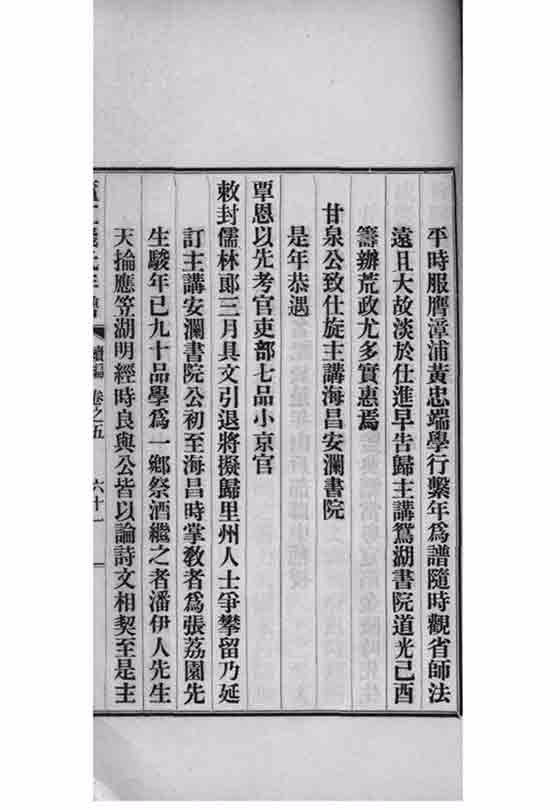 平時服膺漳浦黃忠端學行繫年爲譜隨時觀省師法
遠且大故淡於仕進早告歸主講鴛湖書院道光己酉
籌辦荒政尤多實惠焉
甘泉公致仕旋主講海昌安瀾書院
是年恭遇
覃恩以先考官吏部七品小京官
敕封儒林郎三月具文引退將擬歸里州人士爭攀留乃延
訂主講安瀾書院公初至海昌時掌敎者爲張荔園先
生駿年已九十品學爲一鄉祭酒繼之者潘伊人先生
天掄應笠湖明經時良與公皆以論詩文相契至是主
續編 卷之五 六十一